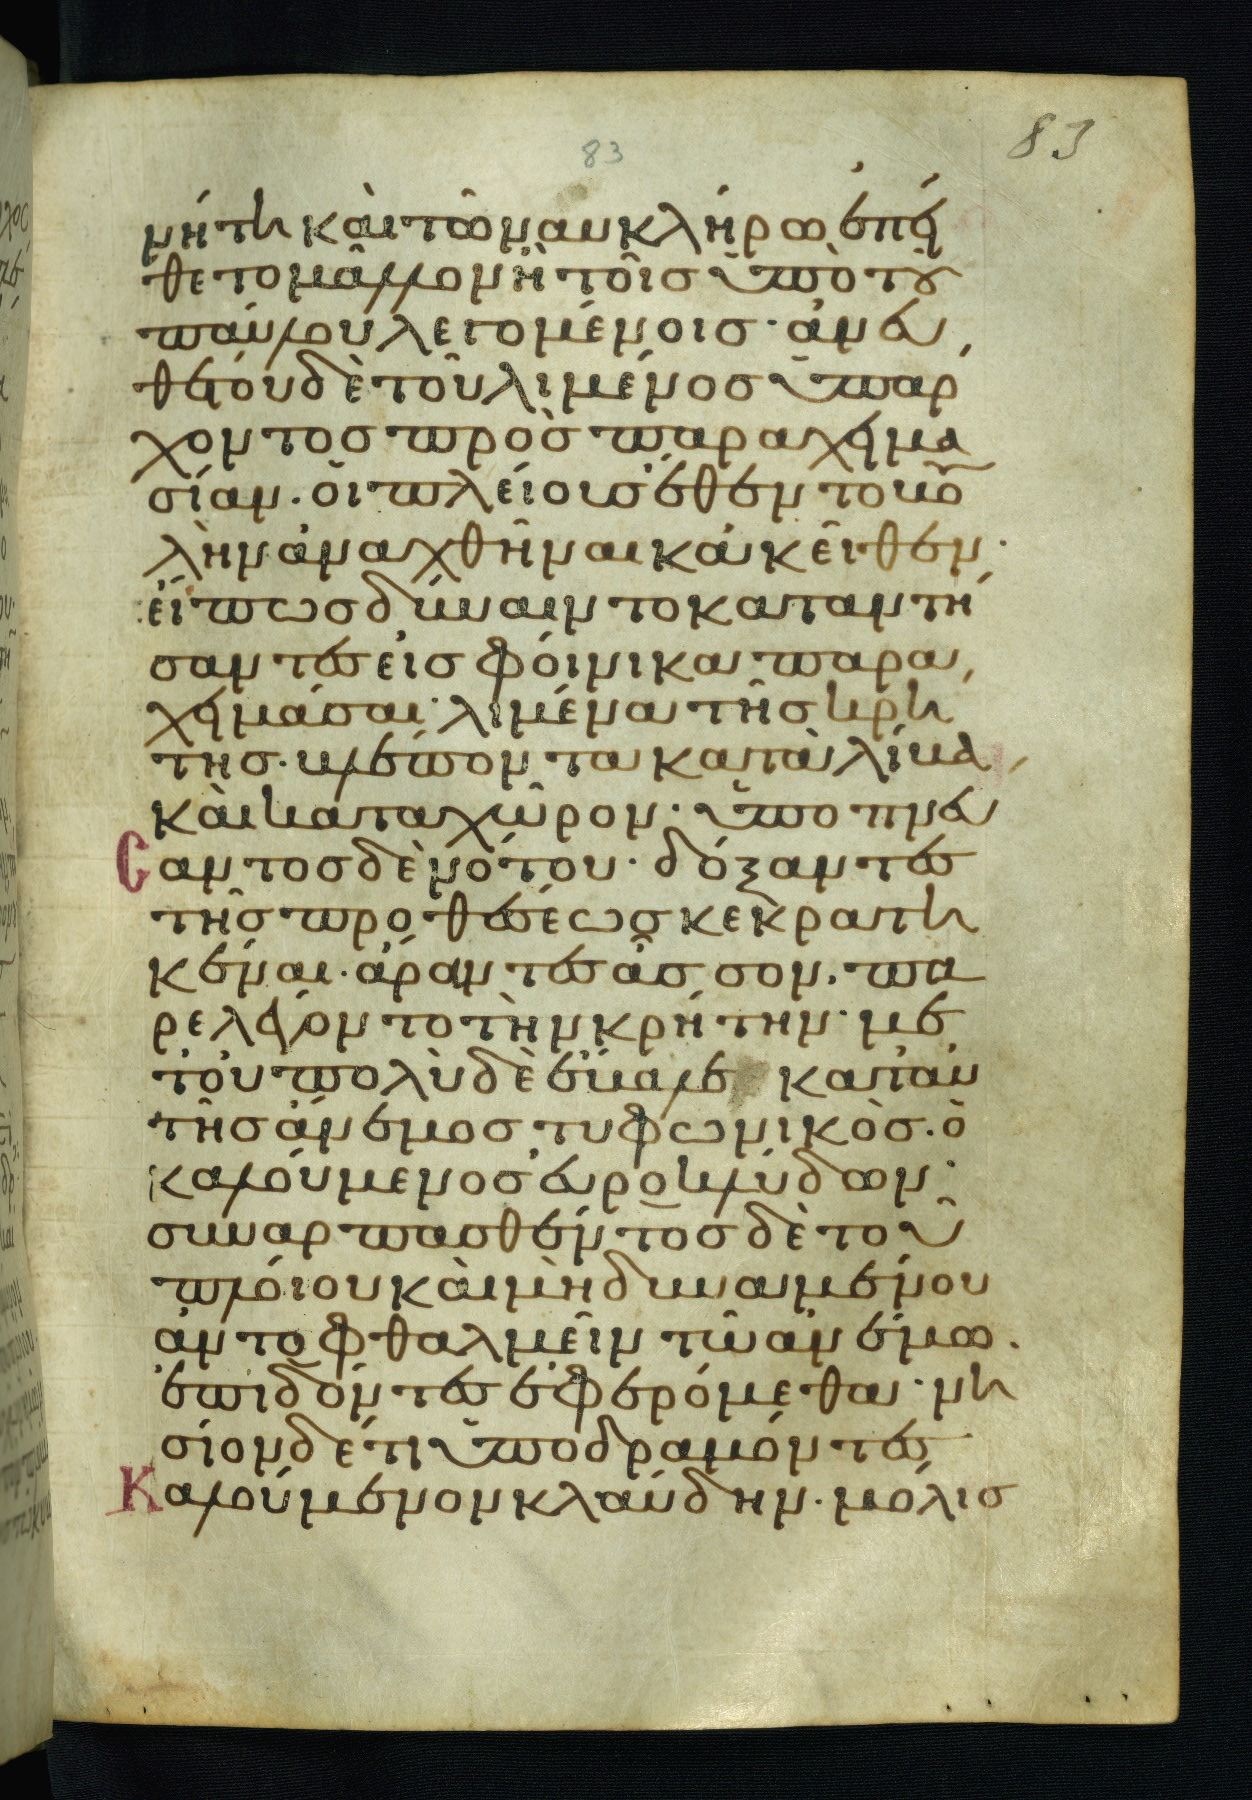 83
83
νήτη καὶ τῶ ναυκλήρω ἐπεί
θετο μᾶλλον ἢ τοῖς ὑπὸ τοῦ
παύλου λεγομένοις· ἀνευ
θέτου δὲ τοῦ λιμένος ὑπάρ
χοντος πρὸς παραχειμα
σίαν. οἱ πλείους ἔθεντο βου
λὴν ἀναχθῆναι κἀκεῖθεν·
εἴπως δύναιντο καταντή
σαντες εἰς φοίνικα παρα
χειμάσαι· λιμένα τῆς κρή
της. βλέποντα κατὰ λίβα
καὶ κατα χῶρον· ὑποπνεύ
σαντος δὲ νότου· δόξαντες
τῆς προθέσεως κεκρατη
κέναι. ἄραντες ἆσσον. πα
ρελέγοντο τὴν κρήτην· μετ
τοῦ πολὺ δὲ ἔβαλε κατ αυ
τῆς ἄνεμος τυφωνικὸς. ὁ
καλούμενος εὐροκλύδων·
συναρπασθέντος δὲ τοῦ
πλοίου καὶ μὴ δυναμένου
ἀντοφθαλμεῖν τῶ ἀνέμω.
ἐπιδόντες ἐφερόμεθα· νη
σίον δέ τι ὑποδραμόντες
Καλούμενον κλαύδην. μόλις